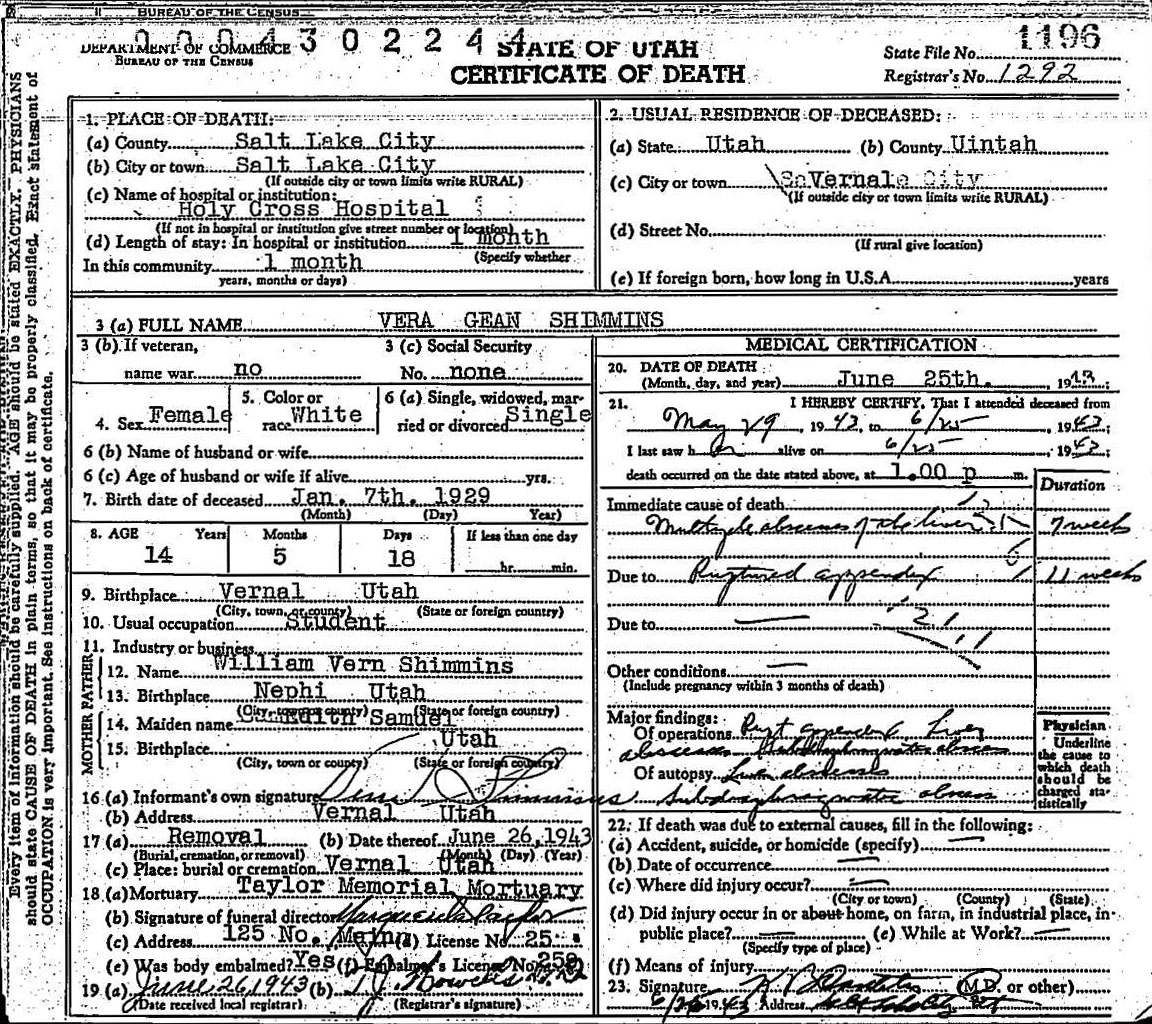 BUREAU OF THE CENSUS
0 0 0 4 3 0 2 2 4 4
DEPARTMENT OF COMMERCE
BUREAU OF THE CENSUS
STATE OF UTAH
CERTIFICATE OF DEATH
State File No. 1196
Registrar's No. 1292
Every item of information should be carefully supplied. AGE should be stated EXACTLY. PHYSICIANS
should state CAUSE OF DEATH in plain terms, so that it may be properly classified. Exact statement of
OCCUPATION is very important. See instructions on back of certificate.
1. PLACE OF DEATH:
(a) County Salt Lake City
(b) City or town Salt Lake City
(If outside city or town limits write RURAL)
(c) Name of hospital or institution:
Holy Cross Hospital
(If not in hospital or institution give street number or location)
(d) Length of stay: In hospital or institution 1 month
(Specify whether
In this community 1 month
years, months or days)
2. USUAL RESIDENCE OF DECEASED:
(a) State Utah (b) County Uintah
(c) City or town Vernal City
(If outside city or town limits write RURAL)
(d) Street No.
(If rural give location)
(e) If foreign born, how long in U.S.A. years
3 (a) FULL NAME VERA GEAN SHIMMINS
3 (b) If veteran,
name war no
3 (c) Social Security
No. none
4. Sex Female
5. Color or
race White
6 (a) Single, widowed, mar-
ried or divorced Single
6 (b) Name of husband or wife
6 (c) Age of husband or wife if alive yrs.
7. Birth date of deceased Jan. 7th. 1929
(Month) (Day) Year)
8. AGE Years Months Days If less than one day
14 5 18 hr. min.
9. Birthplace Vernal Utah
(City, town, or county) (State or foreign country)
10. Usual occupation Student
11. Industry or business
FATHER
12. Name William Vern Shimmins
13. Birthplace Nephi Utah
(City, town or county) (State or foreign country)
MOTHER
14. Maiden name Edith Samuel
15. Birthplace Utah
(City, town or county) (State or foreign country)
16 (a) Informant's own signature Shimmins
(b) Address Vernal Utah
17 (a) Removal (b) Date thereof June 26, 1943
(Burial, cremation, or removal) (Month) (Day) (Year)
(c) Place: burial or cremation Vernal Utah
18 (a) Mortuary Taylor Memorial Mortuary
(b) Signature of funeral director Taylor
(c) Address 125 No. Main (d) License No. 25
(e) Was body embalmed? Yes (f) Embalmer's License No. 259
19 (a) June 26, 1943 (b)
(Date received local registrar) (Registrar's signature)
MEDICAL CERTIFICATION
20. DATE OF DEATH
(Month, day, and year) June 25th. 1943;
21. I HEREBY CERTIFY, That I attended deceased from
May 29, 1943, to 6/25 1943;
I last saw her alive on 6/25 1943;
death occurred on the date stated above, at 1.00 p m.
Duration
Immediate cause of death
Multiple abscesses of the liver 7 weeks
Due to Ruptured appendix 11 weeks
Due to
Other conditions
(Include pregnancy within 3 months of death)
Major findings:
Of operations Rupt appendix Liver
abscesses Subdiaphragmatic abscess
Of autopsy Liver abscesses
Subdiaphragmatic abscess
Physician
Underline
the cause to
which death
should be
charged sta-
tistically
22. If death was due to external causes, fill in the following:
(a) Accident, suicide, or homicide (specify)
(b) Date of occurrence
(c) Where did injury occur?
(City or town) (County) (State)
(d) Did injury occur in or about home, on farm, in industrial place, in
public place? (e) While at Work?
(Specify type of place)
(f) Means of injury
23. Signature (M.D. or other)
6/26 1943 Address